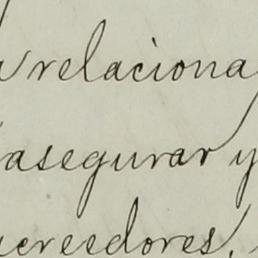 relaciona
asegurar y
acreedores,